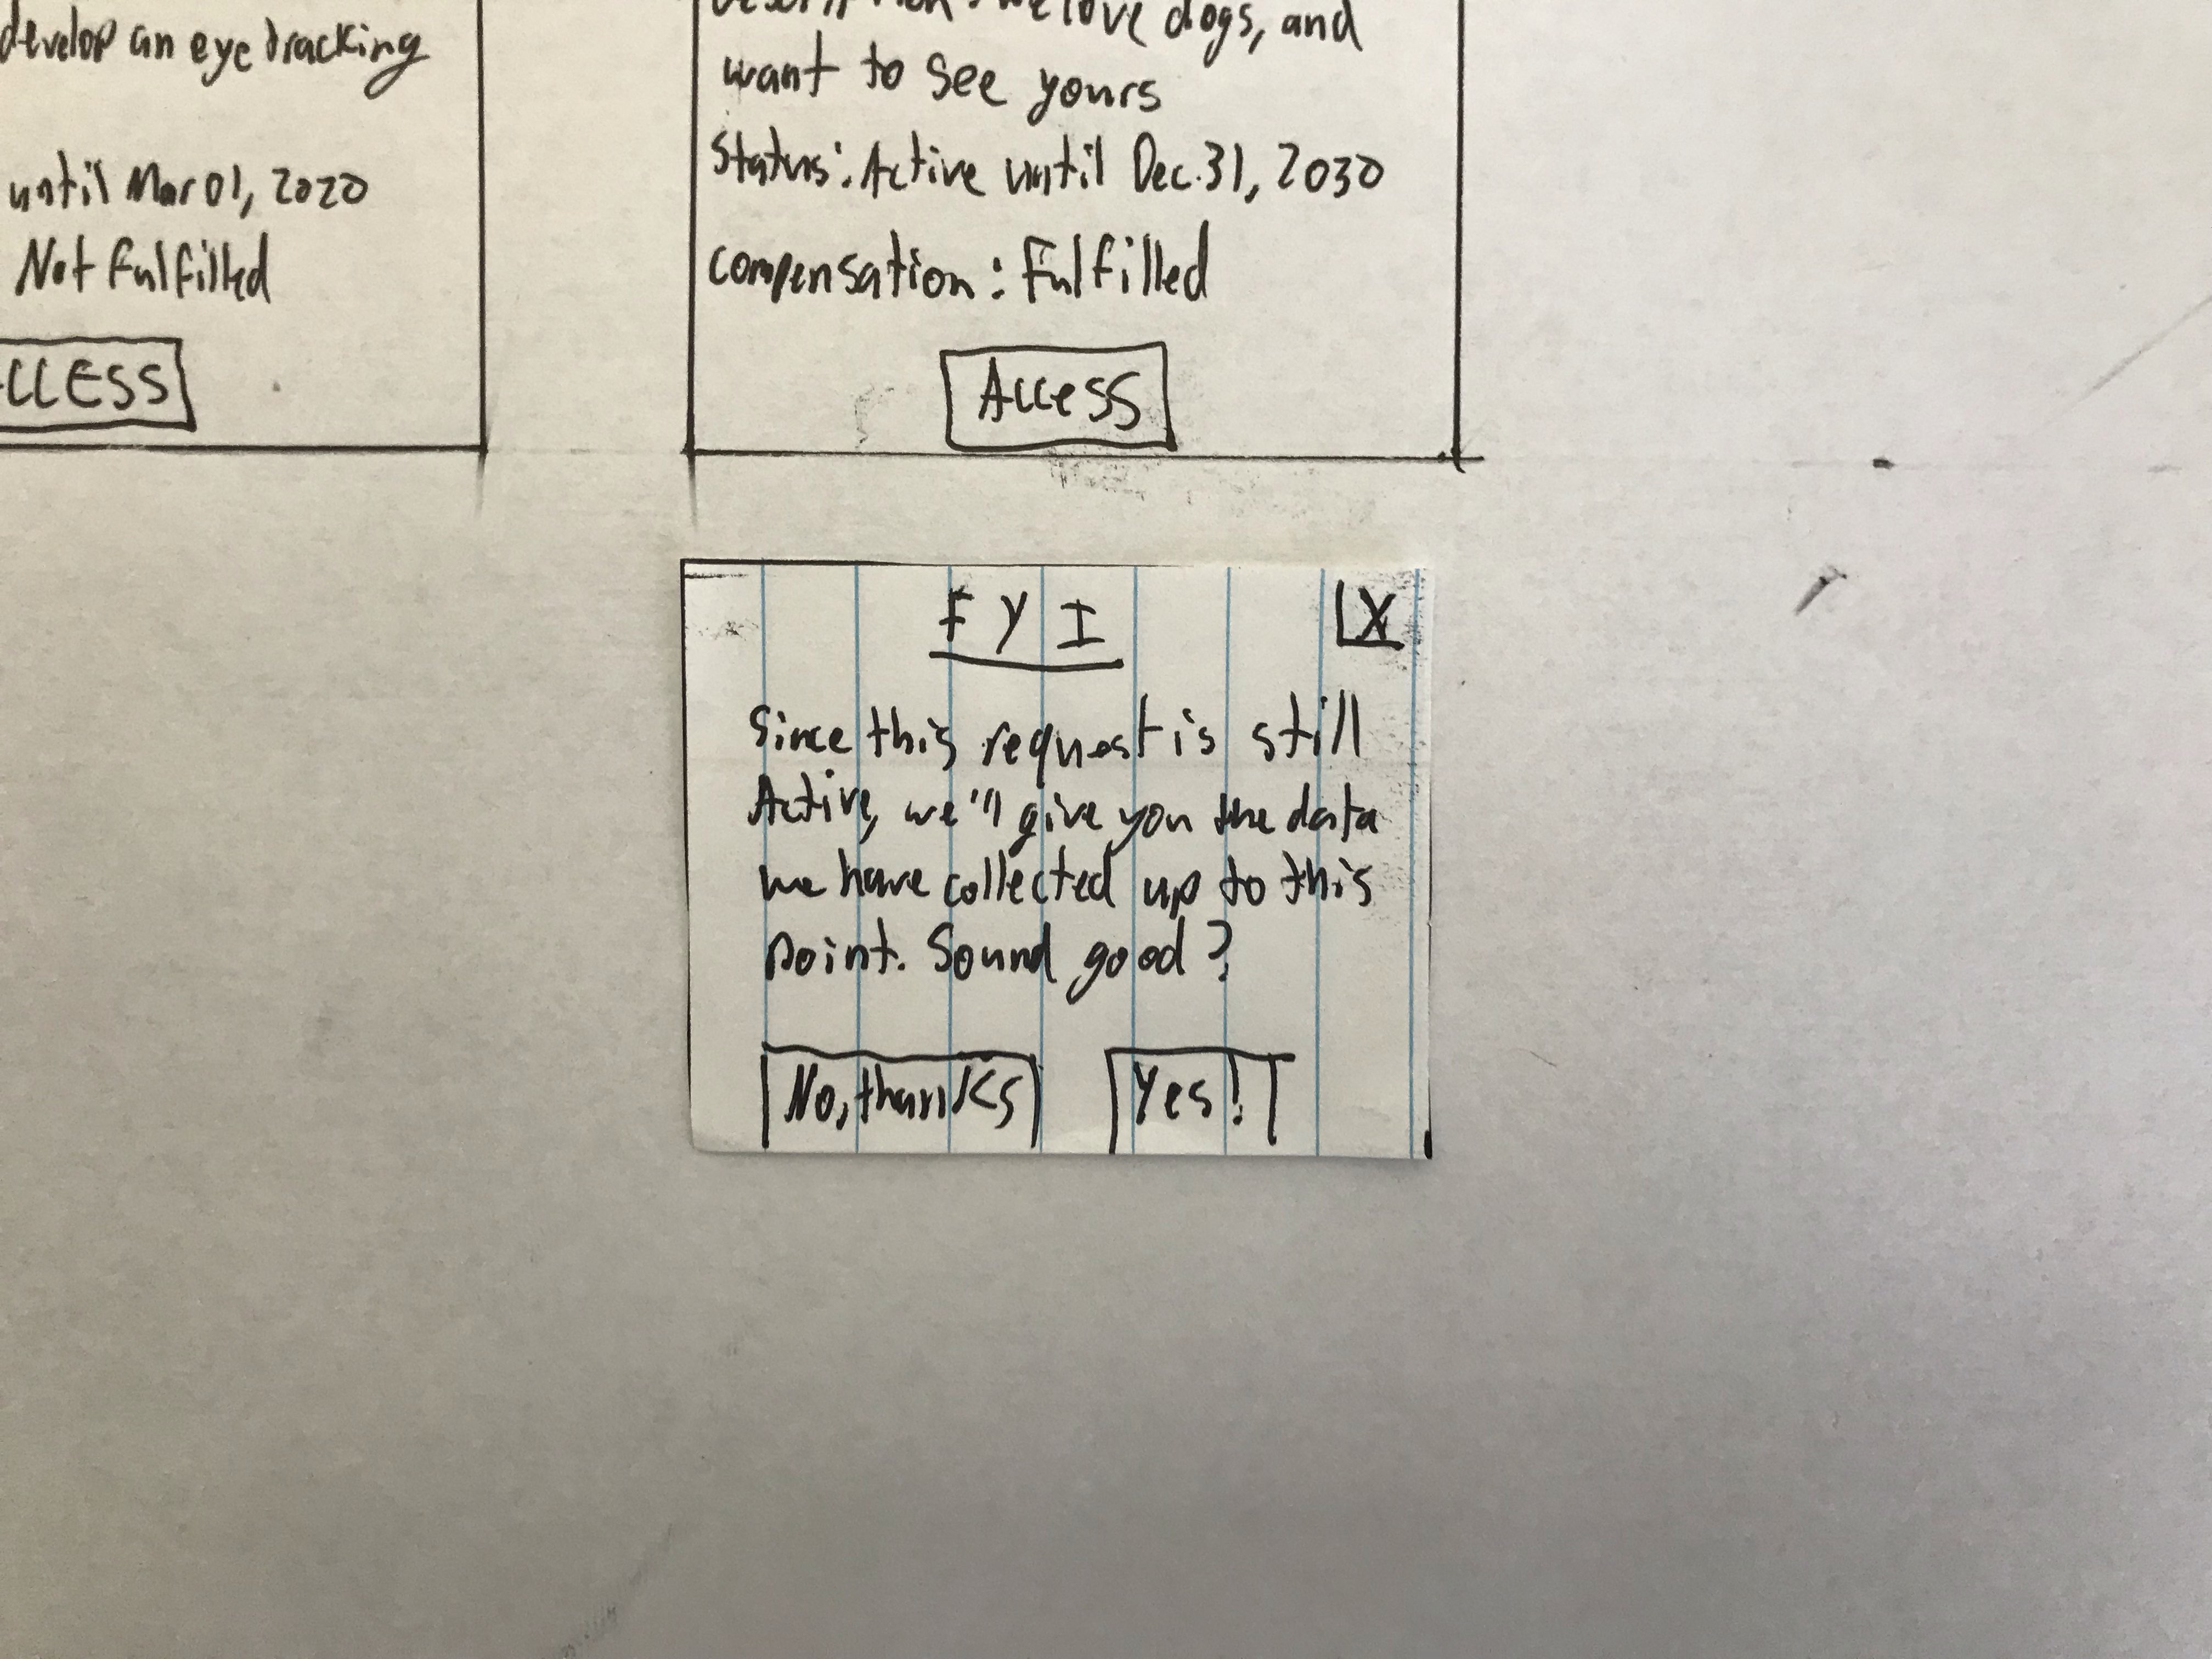 develop an eye tracking
until Mar 01, 2020
Not Fulfilled
ACCESS
Description: we love dogs, and
want to see yours
Status: Active until Dec. 31, 2030
compensation: Fulfilled
Access
FYI
X
Since this request is still
Active, we'll give you the data
we have collected up to this
point. Sound good?
No, thanks
Yes!